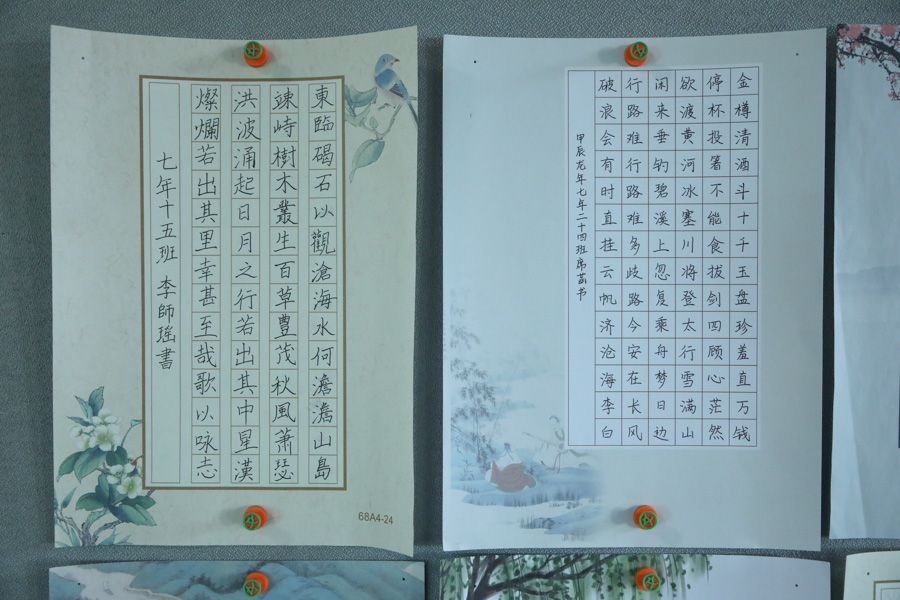 東臨碣石以觀滄海水何澹澹山島
竦峙樹木叢生百草豊茂秋風蕭瑟
洪波涌起日月之行若出其中星漢
燦爛若出其里幸甚至哉歌以咏志
七年十五班 李師瑤書
68A4-24
金樽清酒斗十千玉盘珍羞直万钱
停杯投箸不能食拔剑四顾心茫然
欲渡黄河冰塞川将登太行雪满山
闲来垂钓碧溪上忽复乘舟梦日边
行路难行路难多歧路今安在长风
破浪会有时直挂云帆济沧海李白
甲辰龙年七年二十四班席书